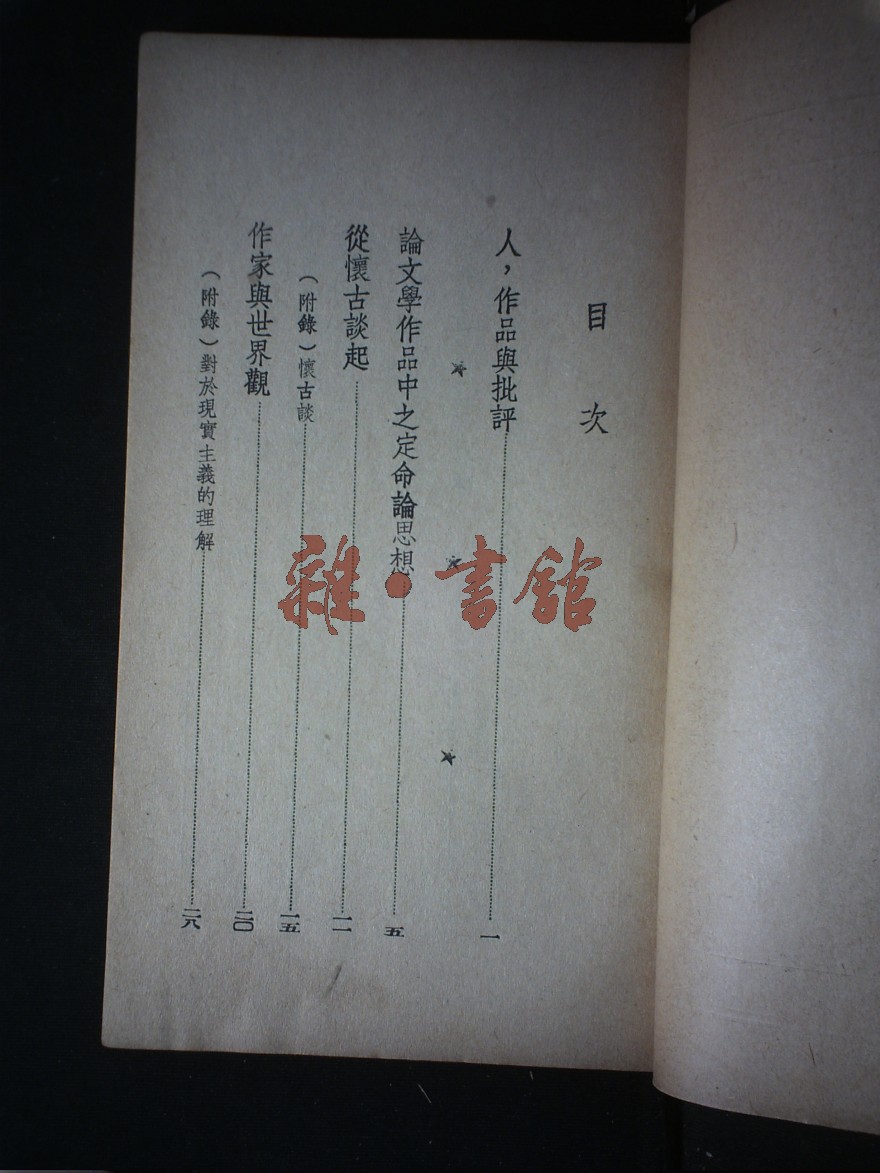 目次
人，作品與批評……一
★ ★ ★
論文學作品中之定命論思想……五
從懷古談起……一一
（附錄）懷古談……一五
作家與世界觀……二〇
（附錄）對於現實主義的理解……二八
雜·書館